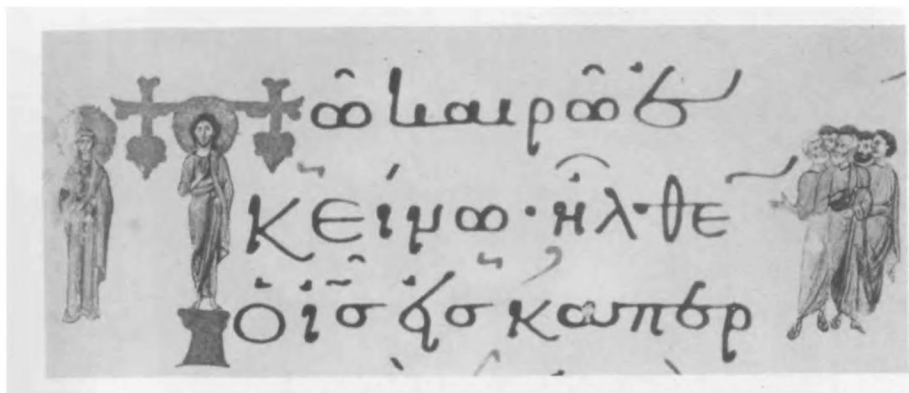 Τῶ καιρῶ ἐ
κείνω· ἦλθε
ὁ ἰς εἰς καπερ